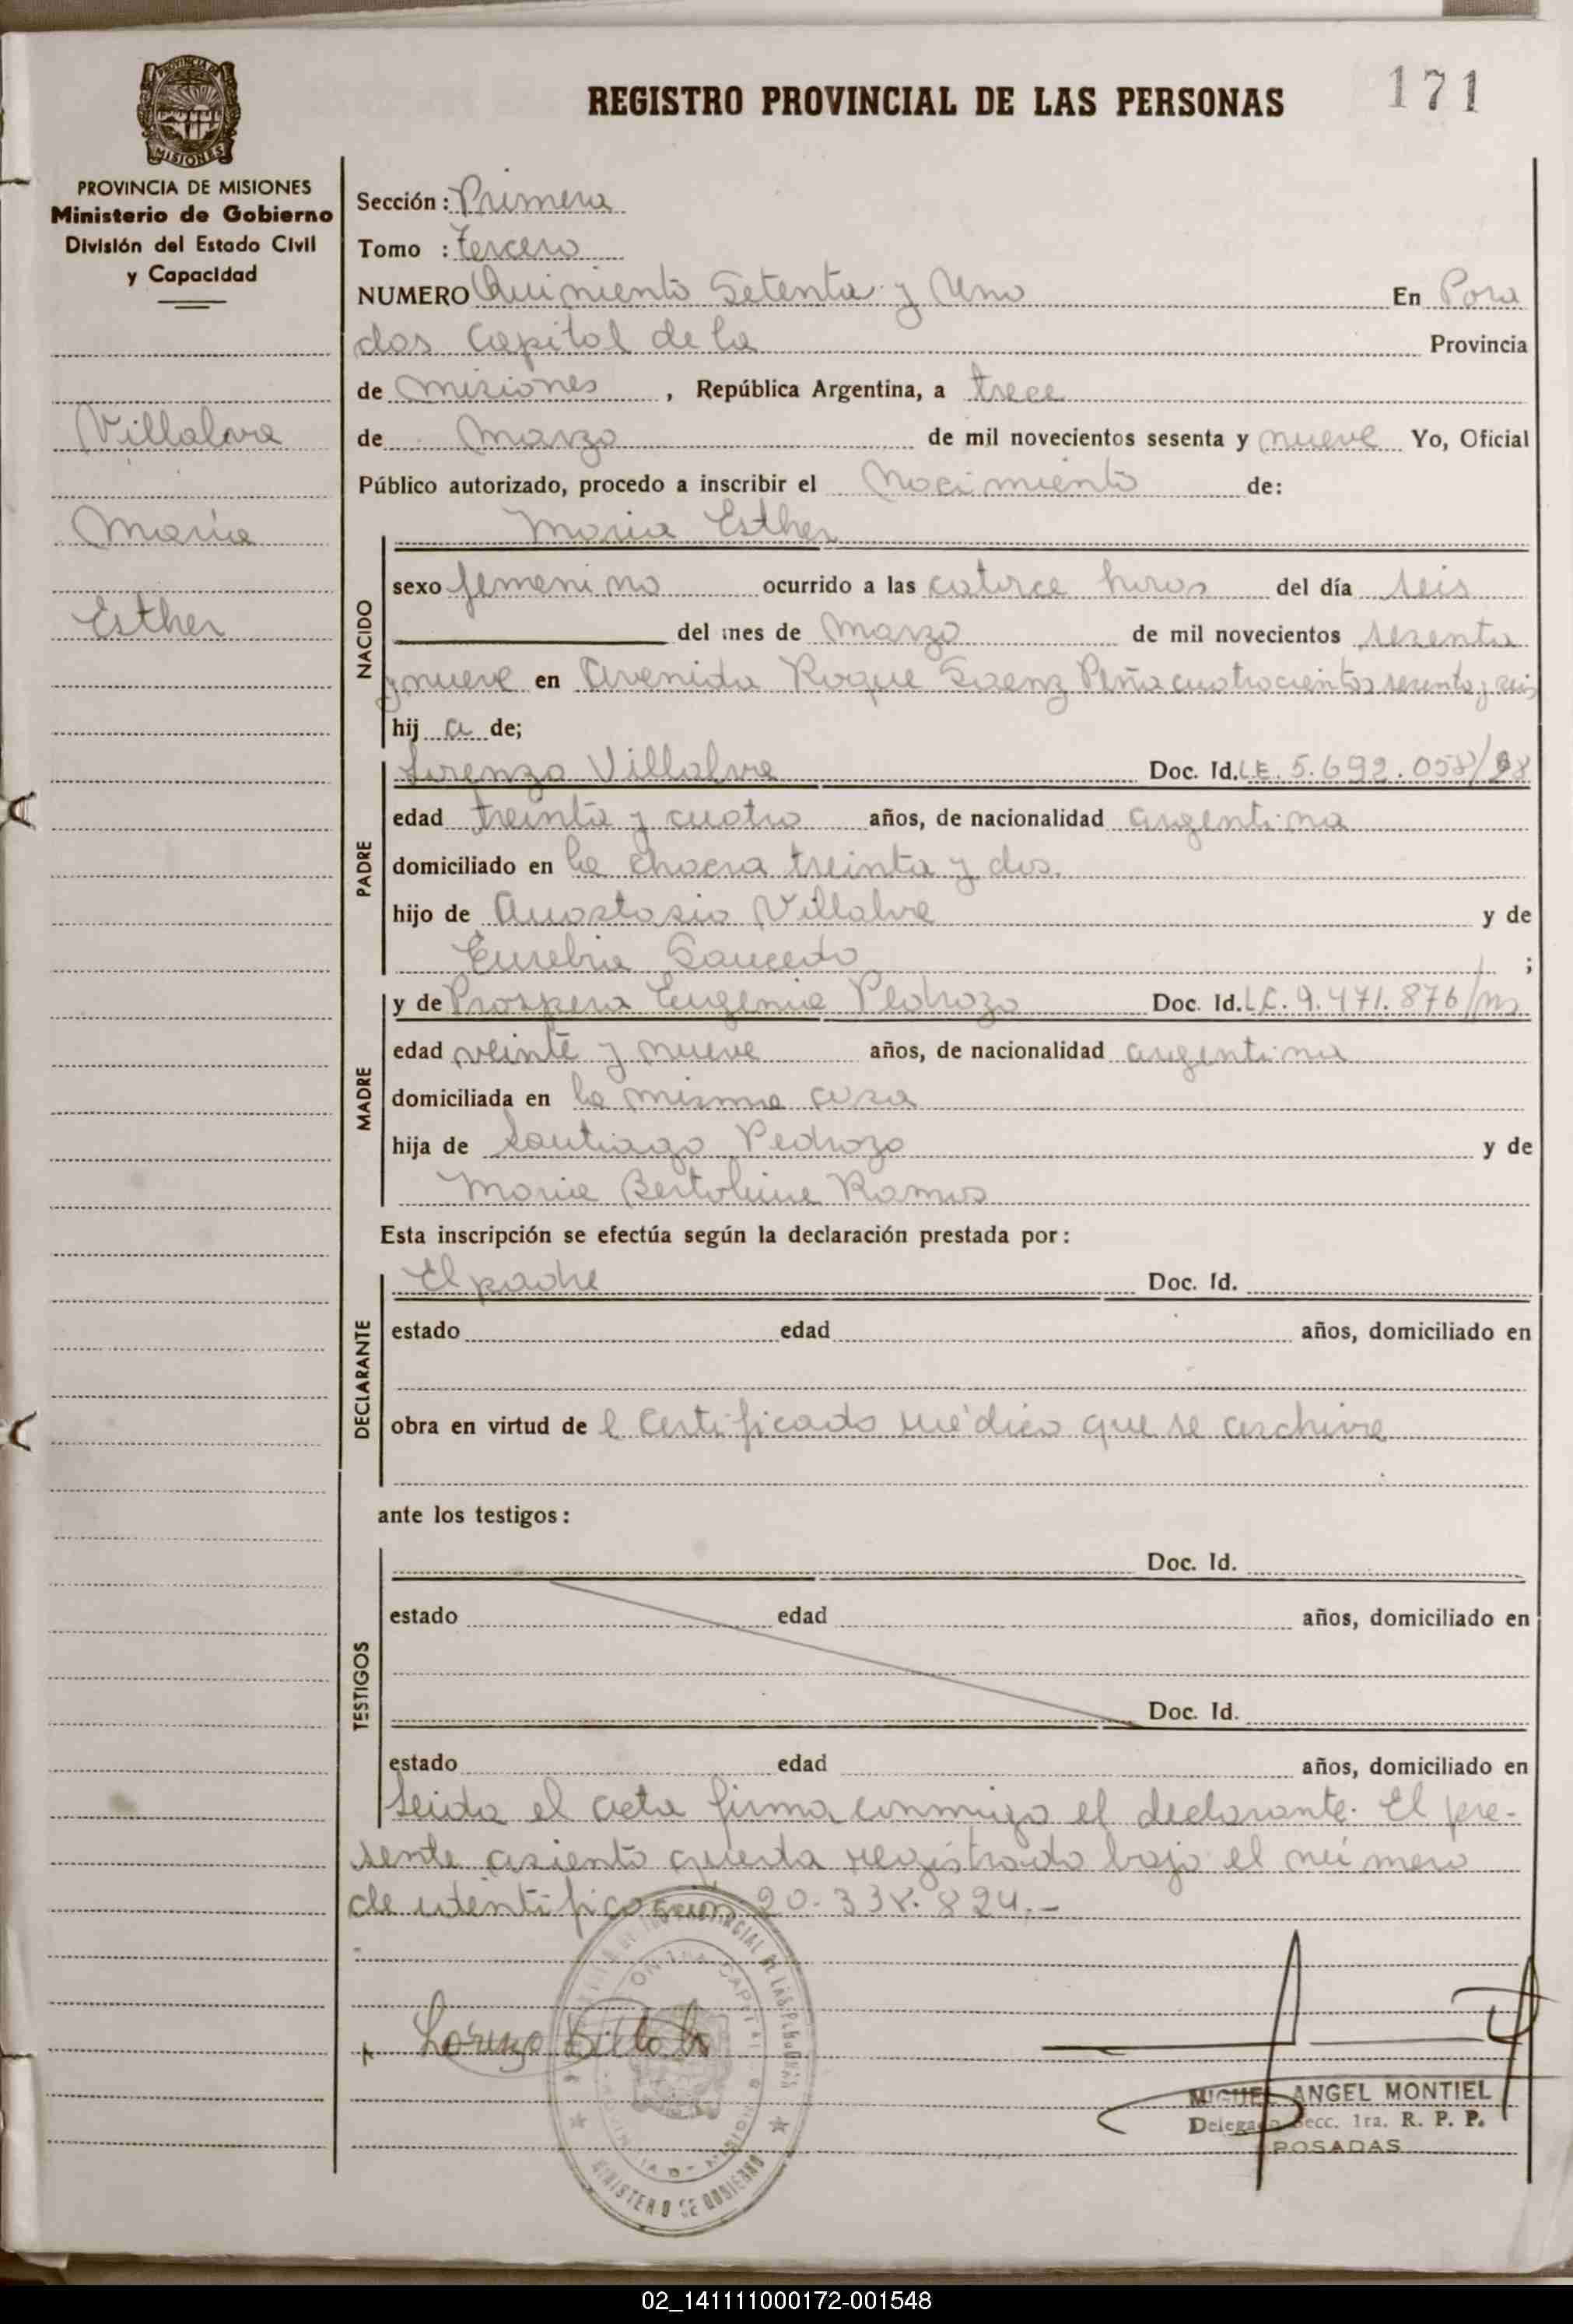 REGISTRO PROVINCIAL DE LAS PERSONAS
171
MISIONES
PROVINCIA DE MISIONES
Ministerio de Gobierno
División del Estado Civil
y Capacidad
Villalva
Maria
Esther
Sección: Primera
Tomo : Tercero
NUMERO Quiniento Setenta y Uno En Posa
das Capital de la Provincia
de Misiones , República Argentina, a trece
de Marzo de mil novecientos sesenta y nueve Yo, Oficial
Público autorizado, procedo a inscribir el Nacimiento de:
NACIDO
Maria Esther
sexo femenino ocurrido a las catorce horas del día seis
del mes de Marzo de mil novecientos sesenta
y nueve en Avenida Roque Saenz Peña cuatrocientos sesenta y seis
hij a de;
PADRE
Lorenzo Villalva Doc. Id. L.E. 5.692.058/
edad treinta y cuatro años, de nacionalidad argentina
domiciliado en la chacra treinta y dos.
hijo de Anastasio Villalva y de
Eusebia Saucedo ;
MADRE
y de Prospera Eugenia Pedrozo Doc. Id. L.C. 9.471.876/
edad veinte y nueve años, de nacionalidad argentina
domiciliada en la misma casa
hija de Santiago Pedrozo y de
Maria Ramos
Esta inscripción se efectúa según la declaración prestada por:
DECLARANTE
El padre Doc. Id.
estado edad años, domiciliado en
obra en virtud de l certificado médico que se archiva
ante los testigos:
TESTIGOS
Doc. Id.
estado edad años, domiciliado en
Doc. Id.
estado edad años, domiciliado en
Leida el acta firma conmigo el declarante. El pre-
sente asiento queda registrado bajo el número
de identificacion 20.338.824.-
Lorenzo
MIGUEL ANGEL MONTIEL
Delegado Secc. 1ra. R. P. P.
POSADAS
MINISTERIO DE GOBIERNO
02_141111000172-001548